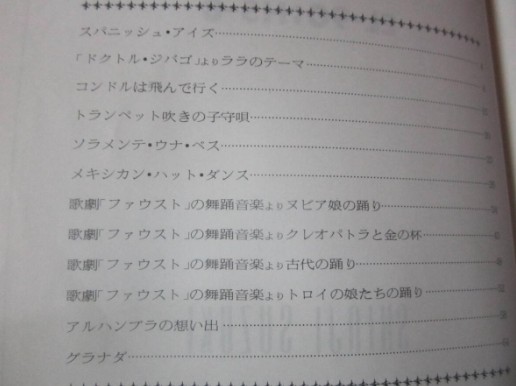 スパニッシュ・アイズ
「ドクトル・ジバゴ」よりララのテーマ
コンドルは飛んで行く
トランペット吹きの子守唄
ソラメンテ・ウナ・ベス
メキシカン・ハット・ダンス
歌劇「ファウスト」の舞踊音楽よりヌビア娘の踊り
歌劇「ファウスト」の舞踊音楽よりクレオパトラと金の杯
歌劇「ファウスト」の舞踊音楽より古代の踊り
歌劇「ファウスト」の舞踊音楽よりトロイの娘たちの踊り
アルハンブラの想い出
グラナダ